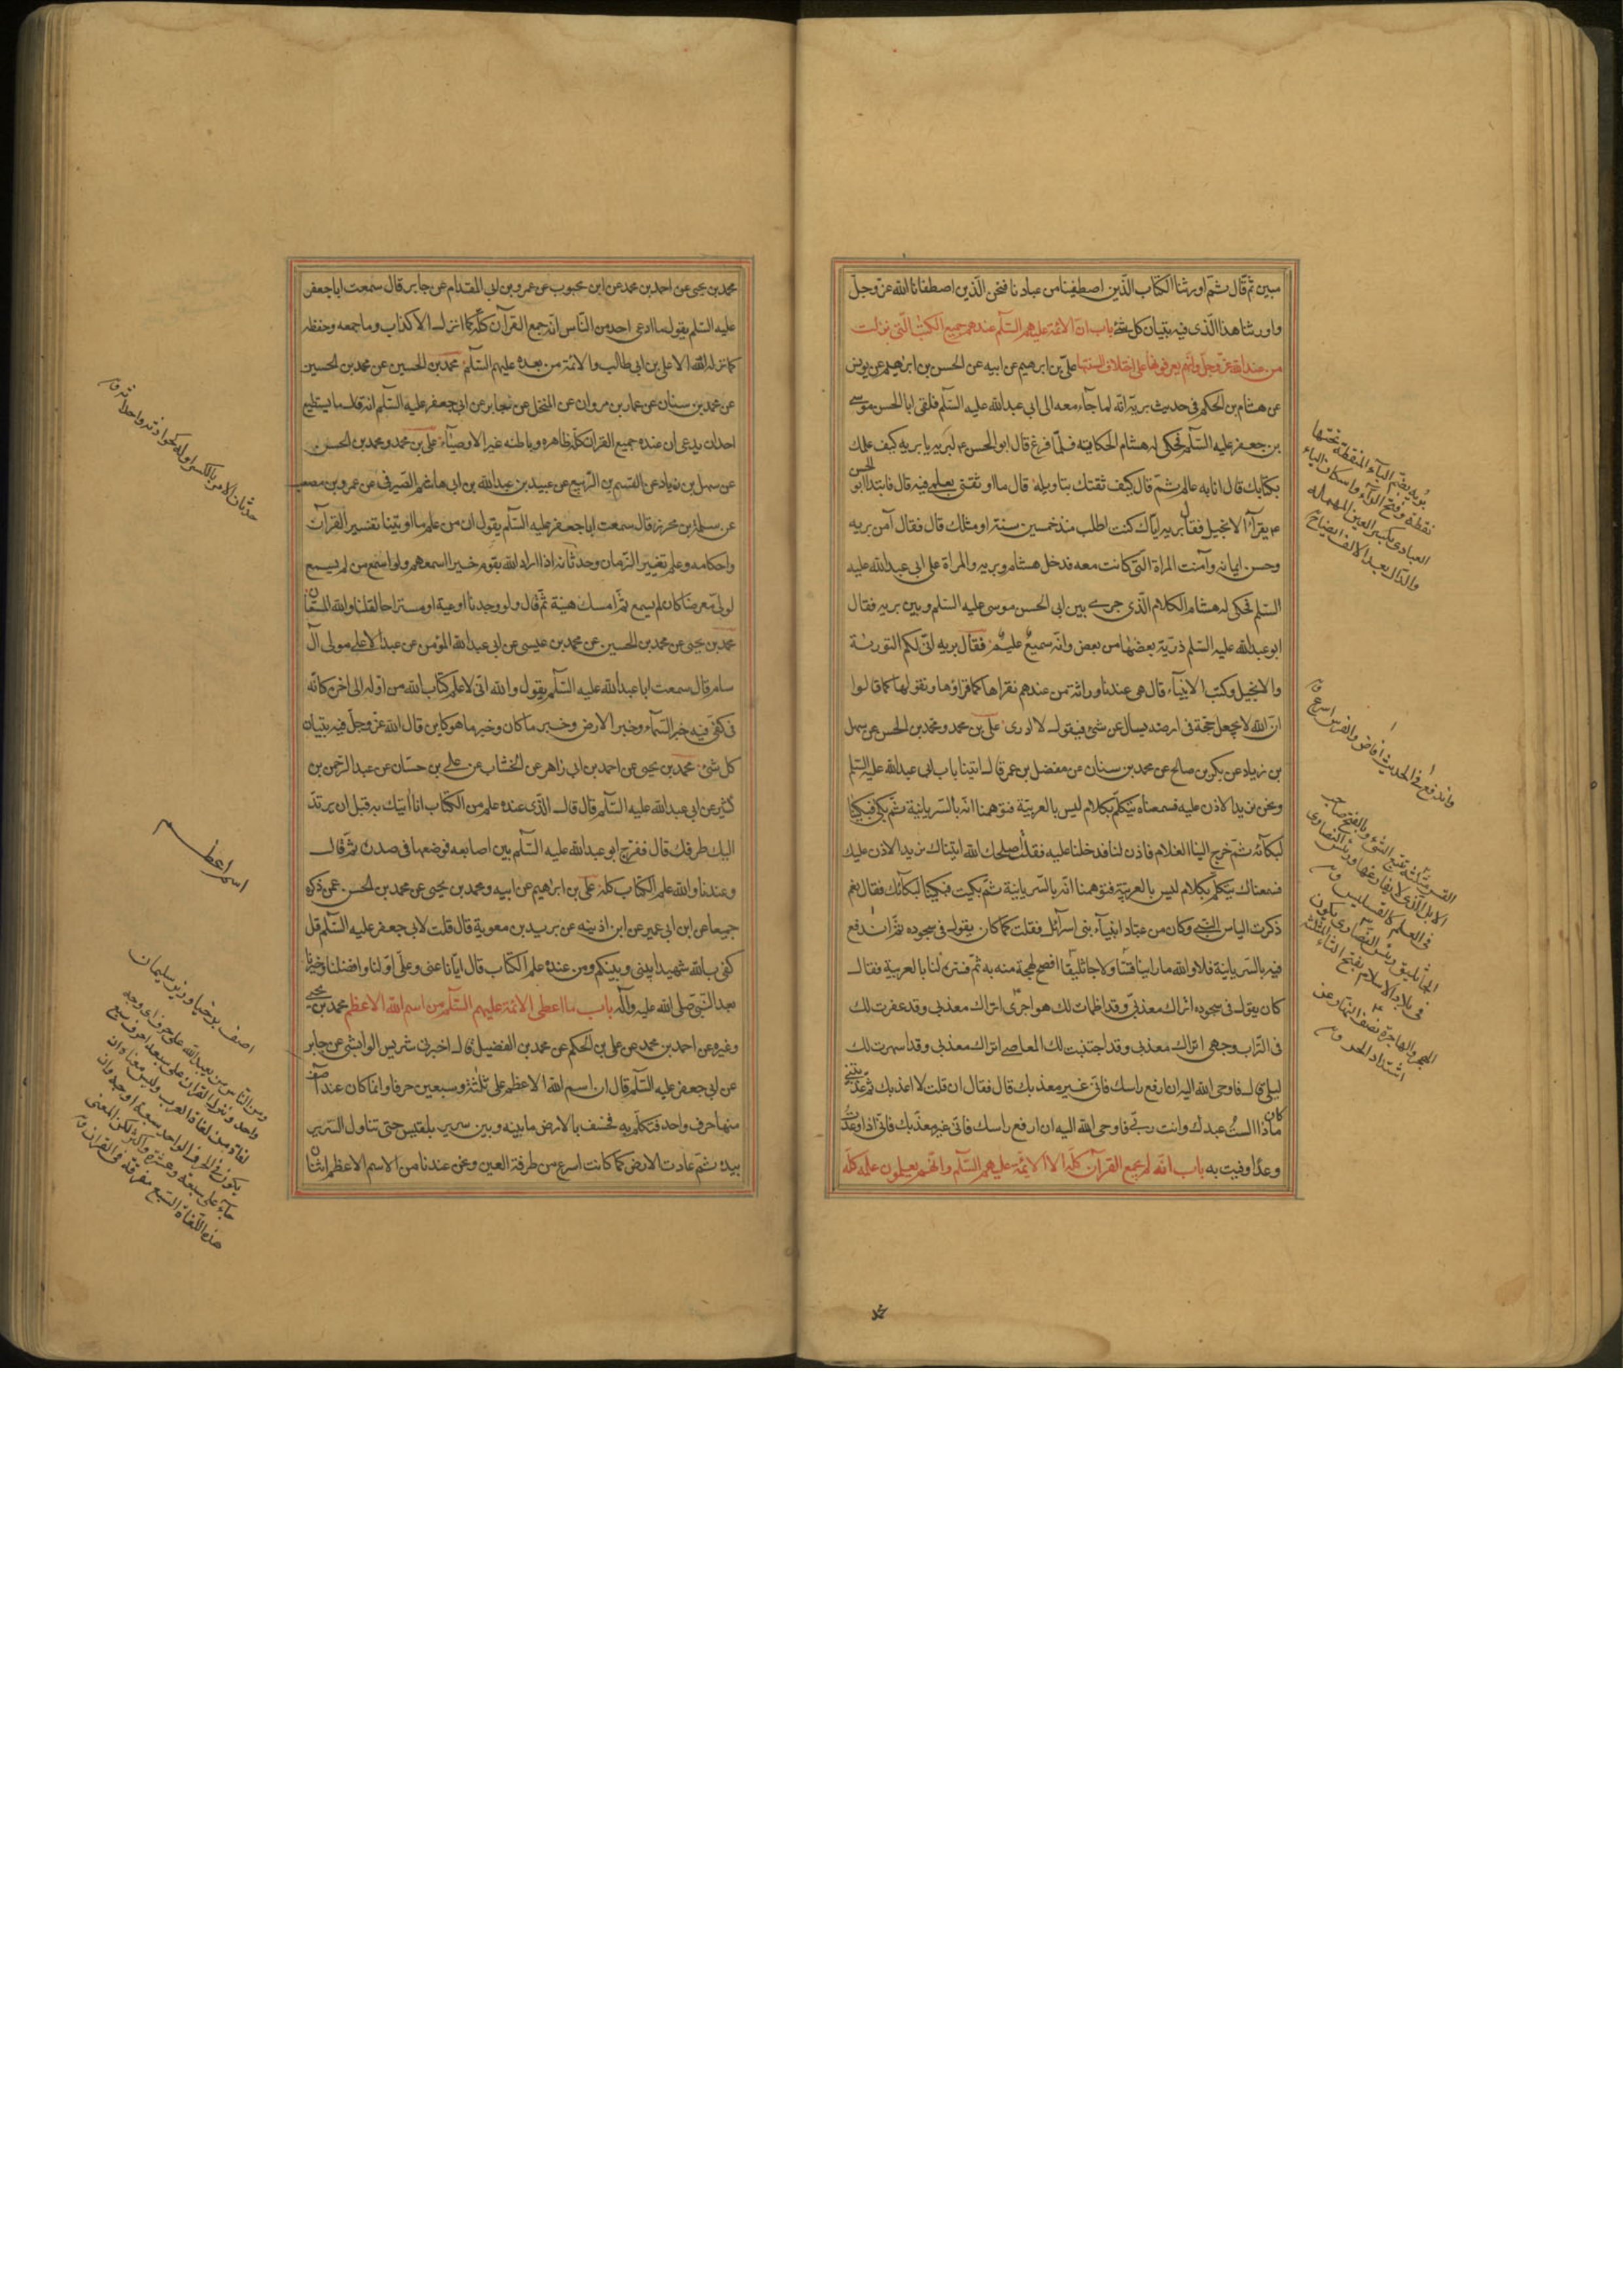 مبين ثم قال ثم اورثنا الكتاب الذين اصطفينا من عبادنا فنحن الذين اصطفانا الله عز وجل
واورثنا هذا الذى فيه تبيان كل شئ باب ان الائمة عليهم السلم عندهم جميع الكتب التى نزلت
من عند الله عز وجل وانهم يعرفونها على اختلاف السنتها على بن ابرهيم عن ابيه عن الحسن بن ابرهيم عن يونس
عن هشام بن الحكم فى حديث بريه انه لما جآء معه الى ابى عبد الله عليه السلم فلقى ابا الحسن موسى
بن جعفر عليه السلم فحكى له هشام الحكاية فلما فرغ قال ابو الحسن ع لبريه يا بريه كيف علمك
بكتابك قال انا به عالم ثم قال كيف ثقتك بتاويله قال ما اوثقنى بعلمى فيه قال فابتدا ابو الحسن
ع يقرأ الانجيل فقال بريه اياك كنت اطلب منذ خمسين سنة او مثلك قال فقال آمن بريه
وحسن ايمانه وآمنت المراة التى كانت معه فدخل هشام وبريه والمراة على ابى عبد الله عليه
السلم فحكى له هشام الكلام الذى جرى بين ابى الحسن موسى عليه السلم وبين بريه فقال
ابو عبد الله عليه السلم ذرية بعضها من بعض والله سميع عليم فقال بريه انى لكم التورية
والانجيل وكتب الانبيآء قال هى عندنا وراثة من عندهم نقراها كما قراؤها ونقولها كما قالوا
ان الله لا يجعل حجة فى ارضه يسال عن شئ فيقول لا ادرى على بن محمد ومحمد بن الحسن عن سهل
بن زياد عن بكر بن صالح عن محمد بن سنان عن مفضل بن عمر قال اتينا باب ابى عبد الله عليه السلم
ونحن نريد الاذن عليه فسمعناه يتكلم بكلام ليس بالعربية فتوهمنا انه بالسريانية ثم بكى فبكينا
لبكآئه ثم خرج الينا الغلام فاذن لنا فدخلنا عليه فقلت اصلحك الله اتيناك نريد الاذن عليك
فسمعناك تتكلم بكلام ليس بالعربية فتوهمنا انه بالسريانية ثم بكيت فبكينا لبكآئك فقال نعم
ذكرت الياس النبى وكان من عباد انبيآء بنى اسرآئل فقلت كما كان يقول فى سجوده ثم اندفع
فيه بالسريانية فلا والله ما راينا قسا ولا جاثليقا افصح لهجة منه به ثم فسره لنا بالعربية فقال
كان يقول فى سجوده اتراك معذبى وقد اظمات لك هواجرى اتراك معذبى وقد عفرت لك
فى التراب وجهى اتراك معذبى وقد اجتنبت لك المعاصى اتراك معذبى وقد اسهرت لك
ليلى قال فاوحى الله اليه ان ارفع راسك فانى غير معذبك قال فقال ان قلت لا اعذبك ثم عذبتنى
كان ماذا الست عبدك وانت ربى فاوحى الله اليه ان ارفع راسك فانى غير معذبك فانى اذا وعدت
وعدا وفيت به باب انه لم يجمع القرآن كله الا الائمة عليهم السلم وانهم يعلمون علمه كله
بريه بضم البآء المنقطة تحتها
نقطة وفتح الرآء واسكان اليآء
العبادى بكسر العين المهمله
والدال بعد الالف ايضاح
واندفع فى الحديث افاض والفرس اسرع ق
القس مثلثة تتبع الشئ وبالفتح صاحب
الابل الذى لا يفارقها ورئيس النصارى
فى العلم كالقسيس ق
الجاثليق رئيس النصارى يكون
فى بلاد الاسلام بفتح الثآء المثلثة
الهجر والهاجرة نصف النهار عن
اشتداد الحر ق
محمد بن يحيى عن احمد بن محمد عن ابن محبوب عن عمرو بن ابى المقدام عن جابر قال سمعت ابا جعفر
عليه السلم يقول ما ادعى احد من الناس انه جمع القرآن كله كما انزل الا كذاب وما جمعه وحفظه
كما نزله الله الا على بن ابى طالب والائمة من بعده عليهم السلم محمد بن الحسين عن محمد بن الحسين
عن محمد بن سنان عن عمار بن مروان عن المنخل عن جابر عن ابى جعفر عليه السلم انه قال ما يستطيع
احد ان يدعى ان عنده جميع القران كله ظاهره وباطنه غير الاوصيآء على بن محمد ومحمد بن الحسن
عن سهل بن زياد عن القسم بن الربيع عن عبيد بن عبد الله بن ابى هاشم الصيرفى عن عمرو بن مصعب
عن سلمة بن محرز قال سمعت ابا جعفر عليه السلم يقول ان من علم ما اوتينا تفسير القرآن
واحكامه وعلم تغيير الزمان وحدثانه اذا اراد الله بقوم خيرا اسمعهم ولو اسمع من لم يسمع
لولى معرضا كان لم يسمع ثم امسك هنية ثم قال ولو وجدنا اوعية او مستراحا لقلنا والله المستعان
محمد بن يحيى عن محمد بن الحسين عن محمد بن عيسى عن ابى عبد الله المؤمن عن عبد الاعلى مولى آل
سام قال سمعت ابا عبد الله عليه السلم يقول والله انى لاعلم كتاب الله من اوله الى اخره كانه
فى كفى فيه خبر السمآء وخبر الارض وخبر ما كان وخبر ما هو كاين قال الله عز وجل فيه تبيان
كل شئ محمد بن يحيى عن احمد بن ابى زاهر عن الخشاب عن على بن حسان عن عبد الرحمن بن
كثير عن ابى عبد الله عليه السلم قال قال الذى عنده علم من الكتاب انا اتيك به قبل ان يرتد
اليك طرفك قال ففرج ابو عبد الله عليه السلم بين اصابعه فوضعها فى صدره ثم قال
وعندنا والله علم الكتاب كله على بن ابراهيم عن ابيه ومحمد بن يحيى عن محمد بن الحسن عمن ذكره
جميعا عن ابن ابى عمير عن ابن اذينه عن بريد بن معوية قال قلت لابى جعفر عليه السلم قل
كفى بالله شهيدا بينى وبينكم ومن عنده علم الكتاب قال ايانا عنى وعلى اولنا وافضلنا وخيرنا
بعد النبى صلى الله عليه وآله باب ما اعطى الائمة عليهم السلم من اسم الله الاعظم محمد بن يحيى
وغيره عن احمد بن محمد عن على بن الحكم عن محمد بن الفضيل قال اخبرنى شريس الوابشى عن جابر
عن ابى جعفر عليه السلم قال ان اسم الله الاعظم على ثلثة وسبعين حرفا وانما كان عند آصف
منها حرف واحد فتكلم به فخسف بالارض ما بينه وبين سرير بلقيس حتى تناول السرير
بيده ثم عادت الارض كما كانت اسرع من طرفة العين ونحن عندنا من الاسم الاعظم اثنان
حدثان الامر بالكسر اوله كحداثته واحداثه ق
اسم اعظم
اصف برخيا وزير سليمان
ومن الناس من يعبد الله على حرف اى وجه
واحد ونزل القران على سبعة احرف سبع
لغات من لغات العرب وليس معناه ان
يكون فى الحرف الواحد سبعة اوجه وان
جآء على سبعة وعشرة واكثر لكن المعنى
هذه اللغات السبع مفرقة فى القران ق